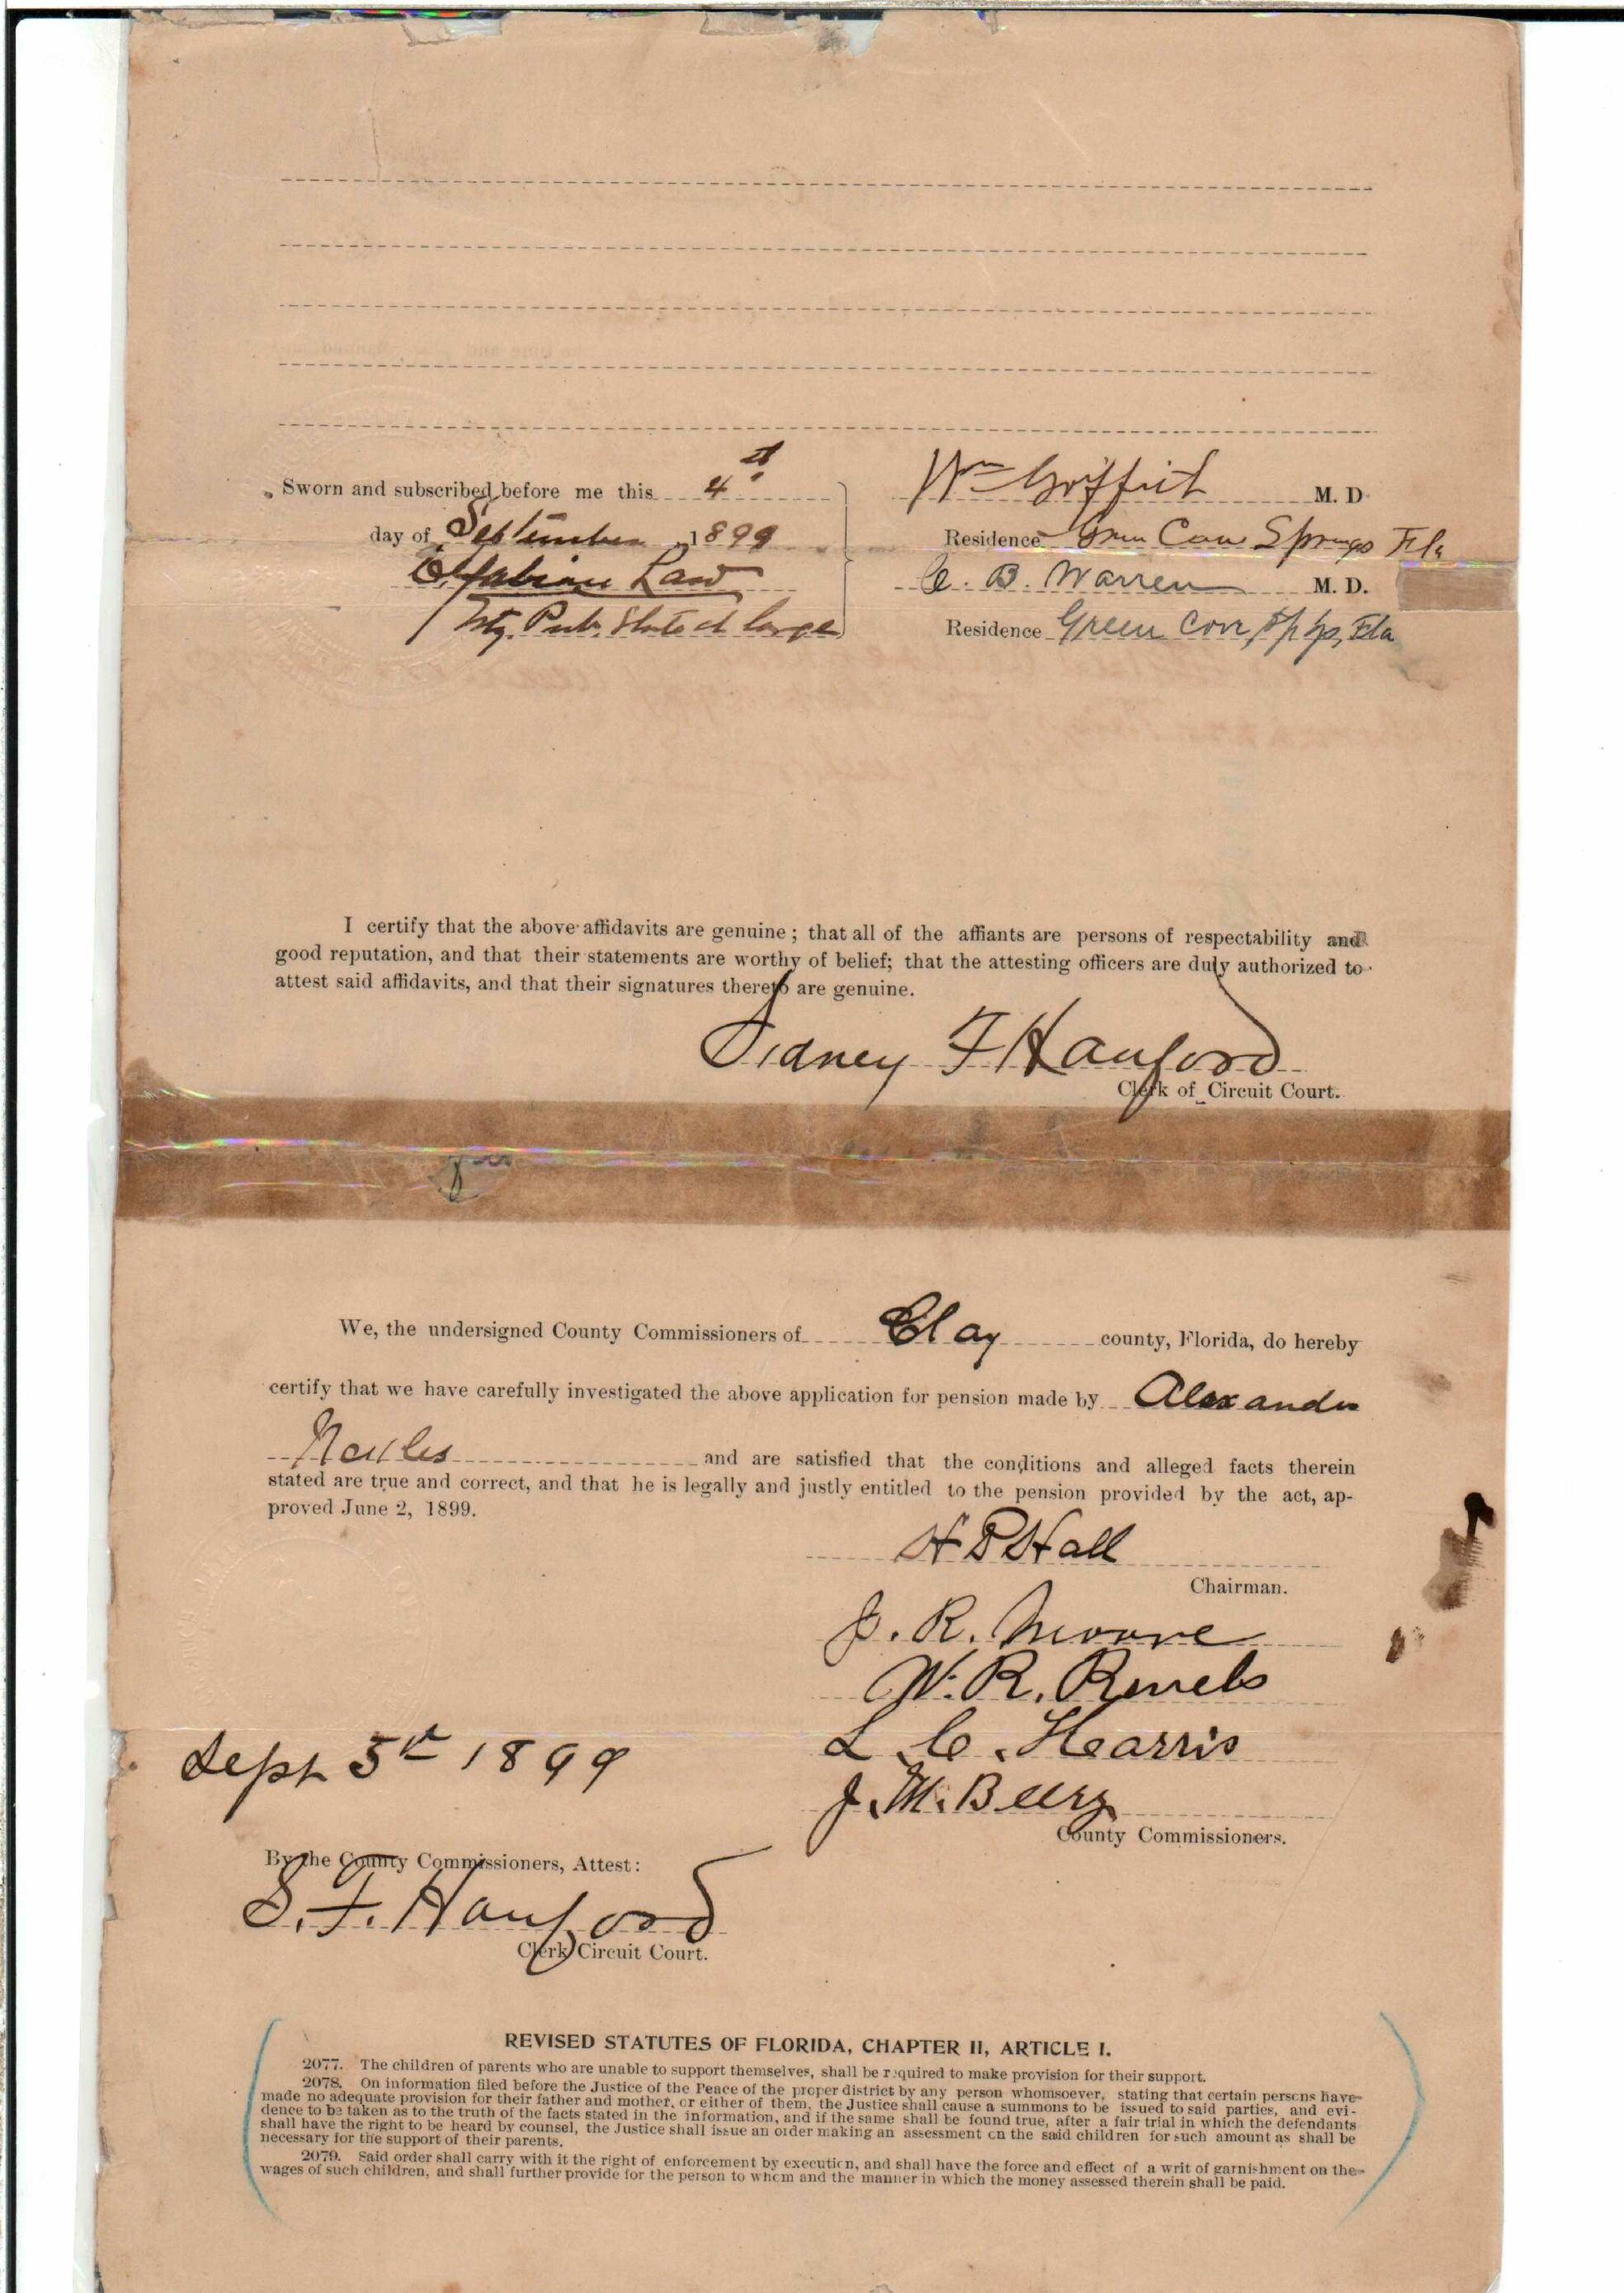 Sworn and subscribed before me this 4th
day of September 1899
Law
Nty. Pub. State at large
Wm Griffith M. D.
Residence Green Cove Springs Fla
C. B. Warren M. D.
Residence Green Cove Spgs, Fla
I certify that the above affidavits are genuine; that all of the affiants are persons of respectability and
good reputation, and that their statements are worthy of belief; that the attesting officers are duly authorized to
attest said affidavits, and that their signatures thereto are genuine.
Sidney F Hanford
Clerk of Circuit Court.
We, the undersigned County Commissioners of Clay county, Florida, do hereby
certify that we have carefully investigated the above application for pension made by Alexander
and are satisfied that the conditions and alleged facts therein
stated are true and correct, and that he is legally and justly entitled to the pension provided by the act, ap-
proved June 2, 1899.
H P Hall
Chairman.
J. R. Moore
W. R.
L. C. Harris
J. M. Beery
County Commissioners.
Sept 5th 1899
By the County Commissioners, Attest:
S. F. Hanford
Clerk Circuit Court.
REVISED STATUTES OF FLORIDA, CHAPTER II, ARTICLE I.
2077. The children of parents who are unable to support themselves, shall be required to make provision for their support.
2078. On information filed before the Justice of the Peace of the proper district by any person whomsoever, stating that certain persons have
made no adequate provision for their father and mother, or either of them, the Justice shall cause a summons to be issued to said parties, and evi-
dence to be taken as to the truth of the facts stated in the information, and if the same shall be found true, after a fair trial in which the defendants
shall have the right to be heard by counsel, the Justice shall issue an order making an assessment on the said children for such amount as shall be
necessary for the support of their parents.
2079. Said order shall carry with it the right of enforcement by execution, and shall have the force and effect of a writ of garnishment on the
wages of such children, and shall further provide for the person to whom and the manner in which the money assessed therein shall be paid.